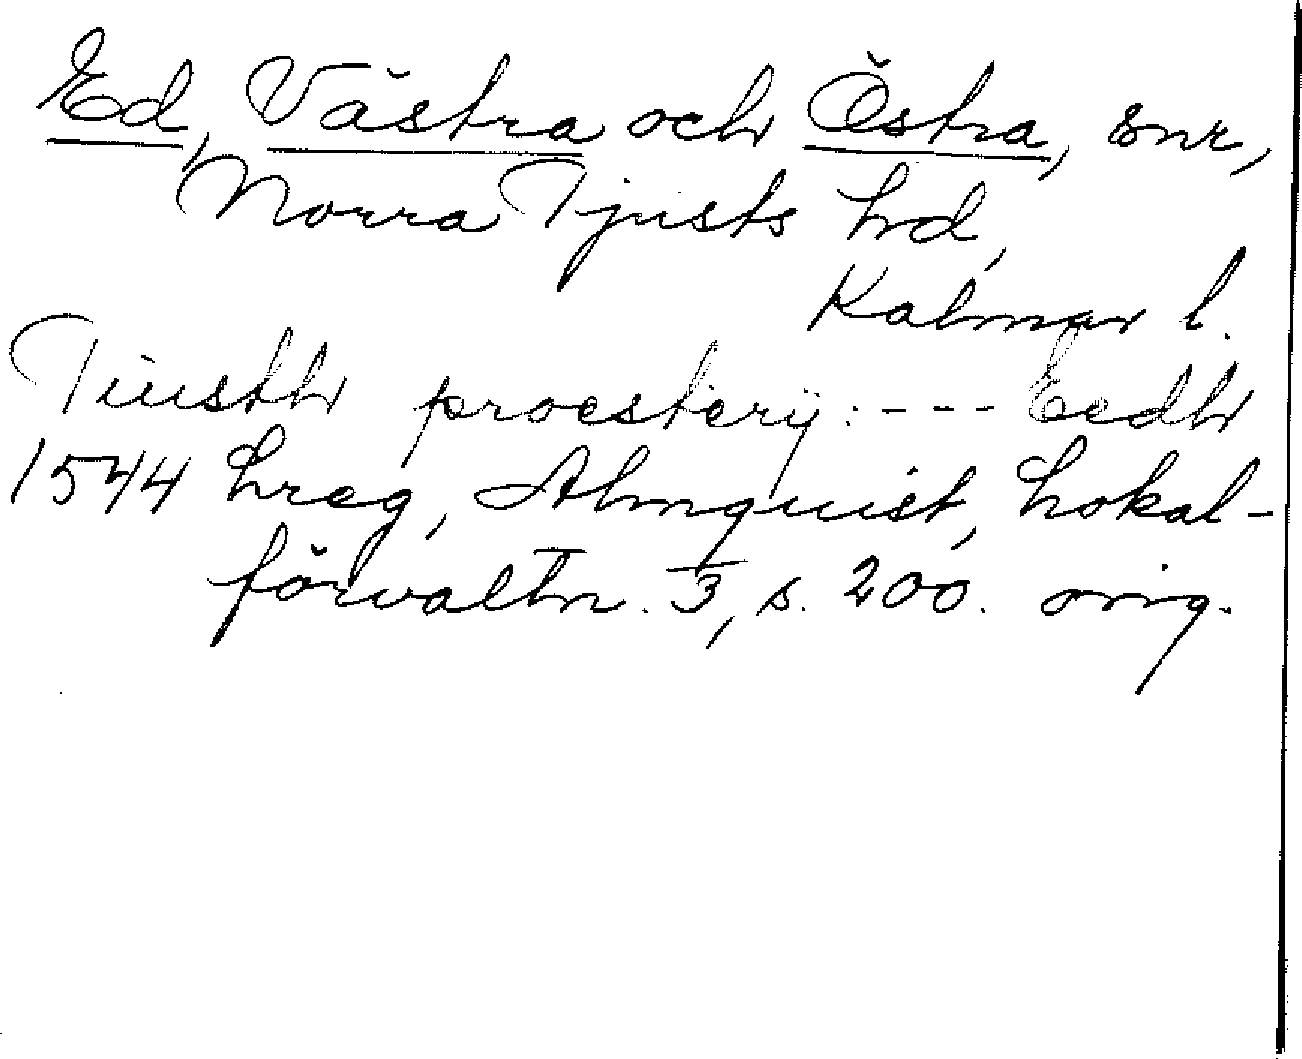 Ed, Västra och Östra, snr,
Norra Tjusts hd,
Kalmar l.
Tiusth proesterij: --- Eedh
1544 hreg, Almquist, Lokal-
förvaltn. 3, s. 200. orig.